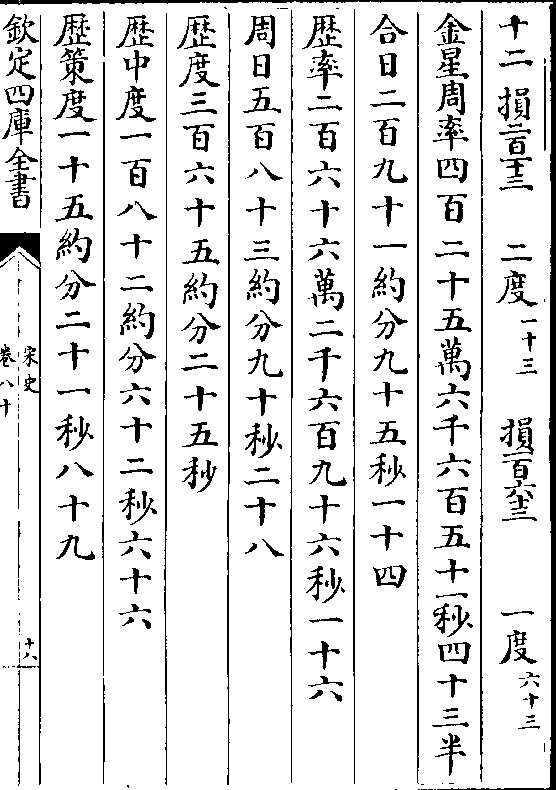 十二　損二百十三　二度一十三　損一百六十三　一度六十三
金星周率四百二十五萬六千六百五十一秒四十三半
合日二百九十一約分九十五秒一十四
歴率二百六十六萬二千六百九十六秒一十六
周日五百八十三約分九十秒二十八
歴度三百六十五約分二十五秒
歴中度一百八十二約分六十二秒六十六
歴策度一十五約分二十一秒八十九
欽定四庫全書
宋史
卷八十
十八